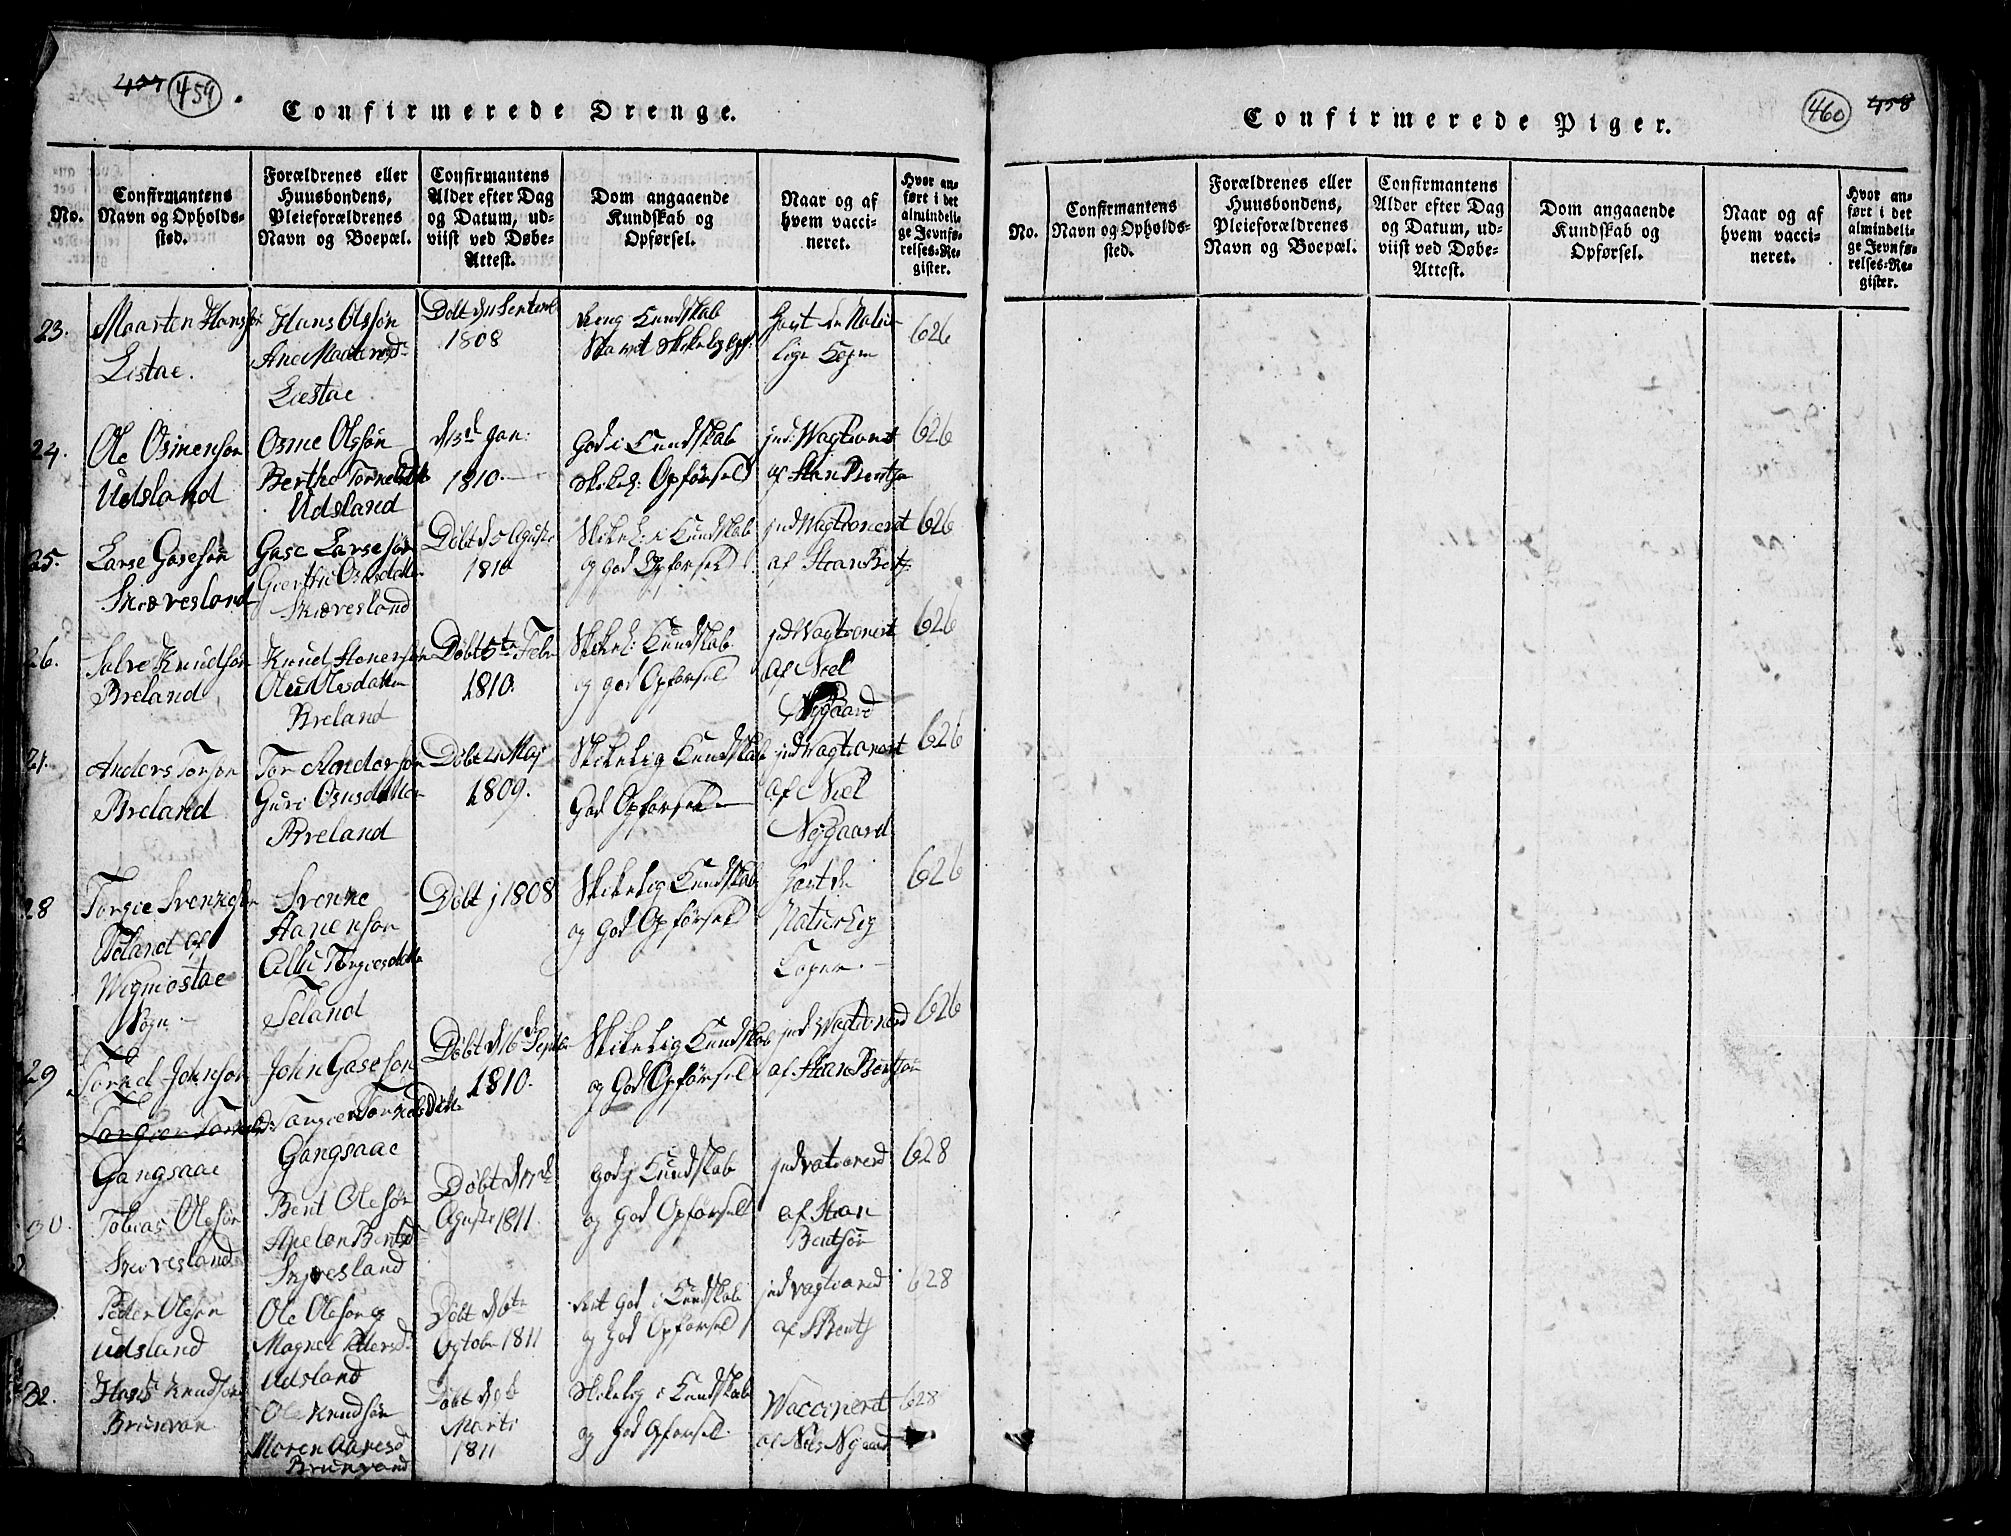 457 459
Confirmerede Drenge.
No.
Confirmantens
Navn og Opholds-
sted.
Forældrenes eller
Huusbondens,
Pleieforældrenes
Navn og Boepæl.
Confirmantens
Alder efter Dag
og Datum, ud-
viist ved Døbe-
Attest.
Dom angaaende
Kundskab og
Opførsel.
Naar og af
hvem vacci-
neret.
Hvor an-
ført i det
almindeli-
ge Jevnfø-
relses-Re-
gister.
23.
Maarten Hansøn
Listae.
Hans Olsøn
Læstae
Døbt d 11 Septemb
1808
Kundskab
Havt de Natur-
lige Koper
626
24.
Ole Osmensøn
Udsland
Osme Olsøn
Berthe
Udsland
d 13d Jan:
1810.
God i Kundskab
Skikel: Opførsel
ind Vagtionert
af Stan Bentsøn
626
25.
Larse Gasesøn
Skævesland
Gase Larsesøn
Giertrue Osmdatter
Skævesland
Døbt d 5 Aguste
1810
Skikel: i Kundskab
og god Opførsel
ind Vagtionert
af Stan Bents:
626
26.
Salve Knudsøn
Breland
Knud
Olesdatter
Breland
Døbt 5te Febr
1810.
Skikel: Kundskab
og god Opførsel
ind Vagtionert
af Niel
Nygaard
626
27.
Anders Torsøn
Breland
Tor Andersøn
Guri Osmsdatter
Breland
Døbt 21 Maj
1809.
Skikelig Kundskab
God Opførsel
ind Vagtionert
af Niel
Nygaard
626
28
Torgie Svenkesøn
Søland af
Sogn
Svenke
Aanensøn
Torgiesdatter
Seland
Døbt i 1808
Skikelig Kundskab
og God Opførsel
Havt de
Naturlig
Koper
626
29
Tornel Johnsøn
Gangsaae
John Gasesøn
Torgier Tornelsdatter
Gangsaae
Døbt d 16d Septbr
1810.
Skikelig Kundskab
og God Opførsel
ind Vagtionerd
af Stan Bentsøn
626
30.
Tobias Olesøn
Skævesland
Bent Olesøn
Skævesland
Døbt d 17de
Aguste 1811.
god i Kundskab
og God Opførsel
indvationerd
af Stan
Bentsøn
628
Peder Olesøn
Udsland
Ole Olesøn og
Magnel Pedersd:
Udsland
Døbt d 6te
Ogtober 1811
God i Kundskab
og God Opførsel
indvagtionerd
af S Bents
628
32.
Hans Knudsøn
Brunvan
Ole Knudsøn
Maren Aanesd
Brunvand
Døbt d 9de
Marti
1811
Skikelig i Kundskab
og God Opførsel.
Vaccineret
af Niels Nygaard
628
460 458
Confirmerede Piger.
No.
Confirmantens
Navn og Opholds-
sted.
Forældrenes eller
Huusbondens,
Pleieforældrenes
Navn og Boepæl.
Confirmantens
Alder efter Dag
og Datum, ud-
viist ved Døbe-
Attest.
Dom angaaende
Kundskab og
Opførsel.
Naar og af
hvem vacci-
neret.
Hvor an-
ført i det
almindeli-
ge Jevnfø-
relses-Re-
gister.